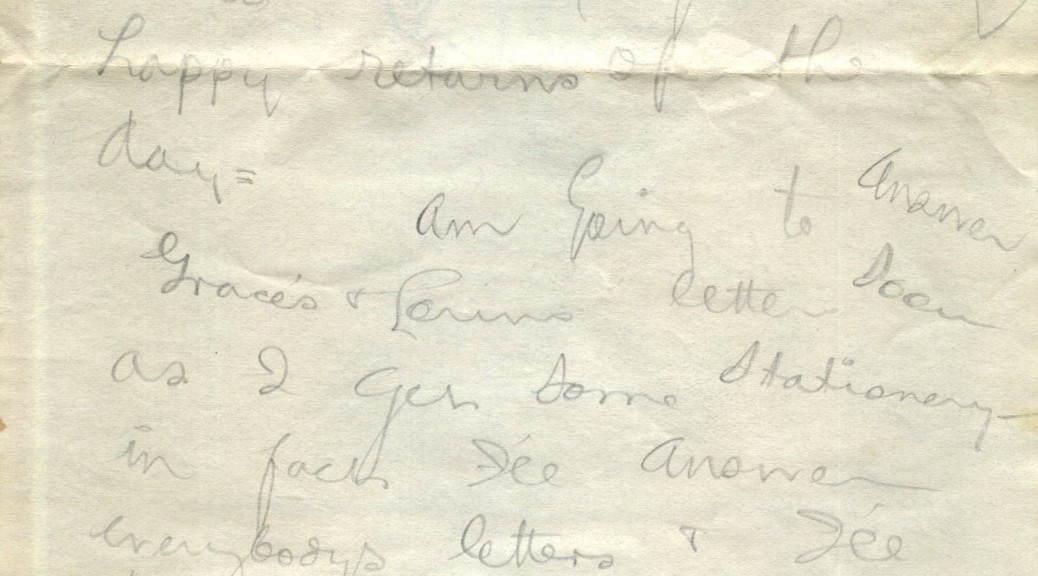 happy returns of the
day=
Am Going to Answer
Grace's & letter Soon
as I Get Some Stationery
in fact I'll Answer
everybodys letters & I'll